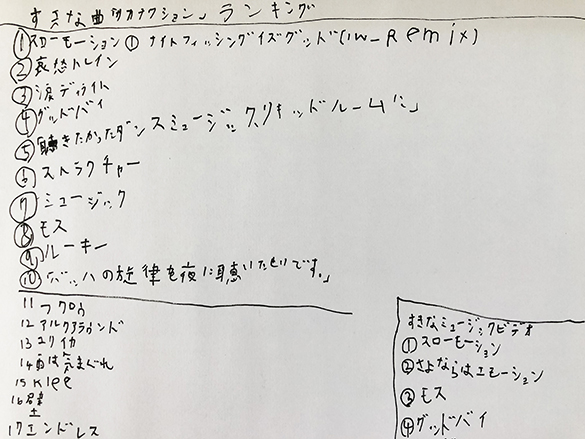 すきな曲「サカナクション」ランキング
①スローモーション ① ナイトフィッシングイズグッド(iw_Remix)
②哀愁トレイン
③涙ディライト
④グッドバイ
⑤「聴きたかったダンスミュージック、リキッドルームに」
⑥ストラクチャー
⑦ミュージック
⑧モス
⑨ルーキー
⑩「バッハの旋律を夜に聴いたせいです。」
11 フクロウ
12 アルクアラウンド
13 ユリイカ
14 雨は気まぐれ
15 Klee
16 壁
17 エンドレス
すきなミュージックビデオ
①スローモーション
②さよならはエモーション
③モス
④グッドバイ